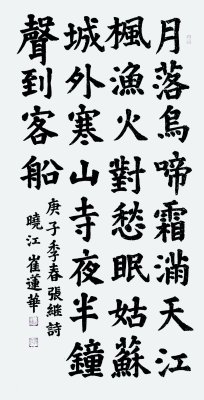 月落烏啼霜滿天江
楓漁火對愁眠姑蘇
城外寒山寺夜半鐘
聲到客船
庚子季春 張繼詩
曉江 崔蓮華